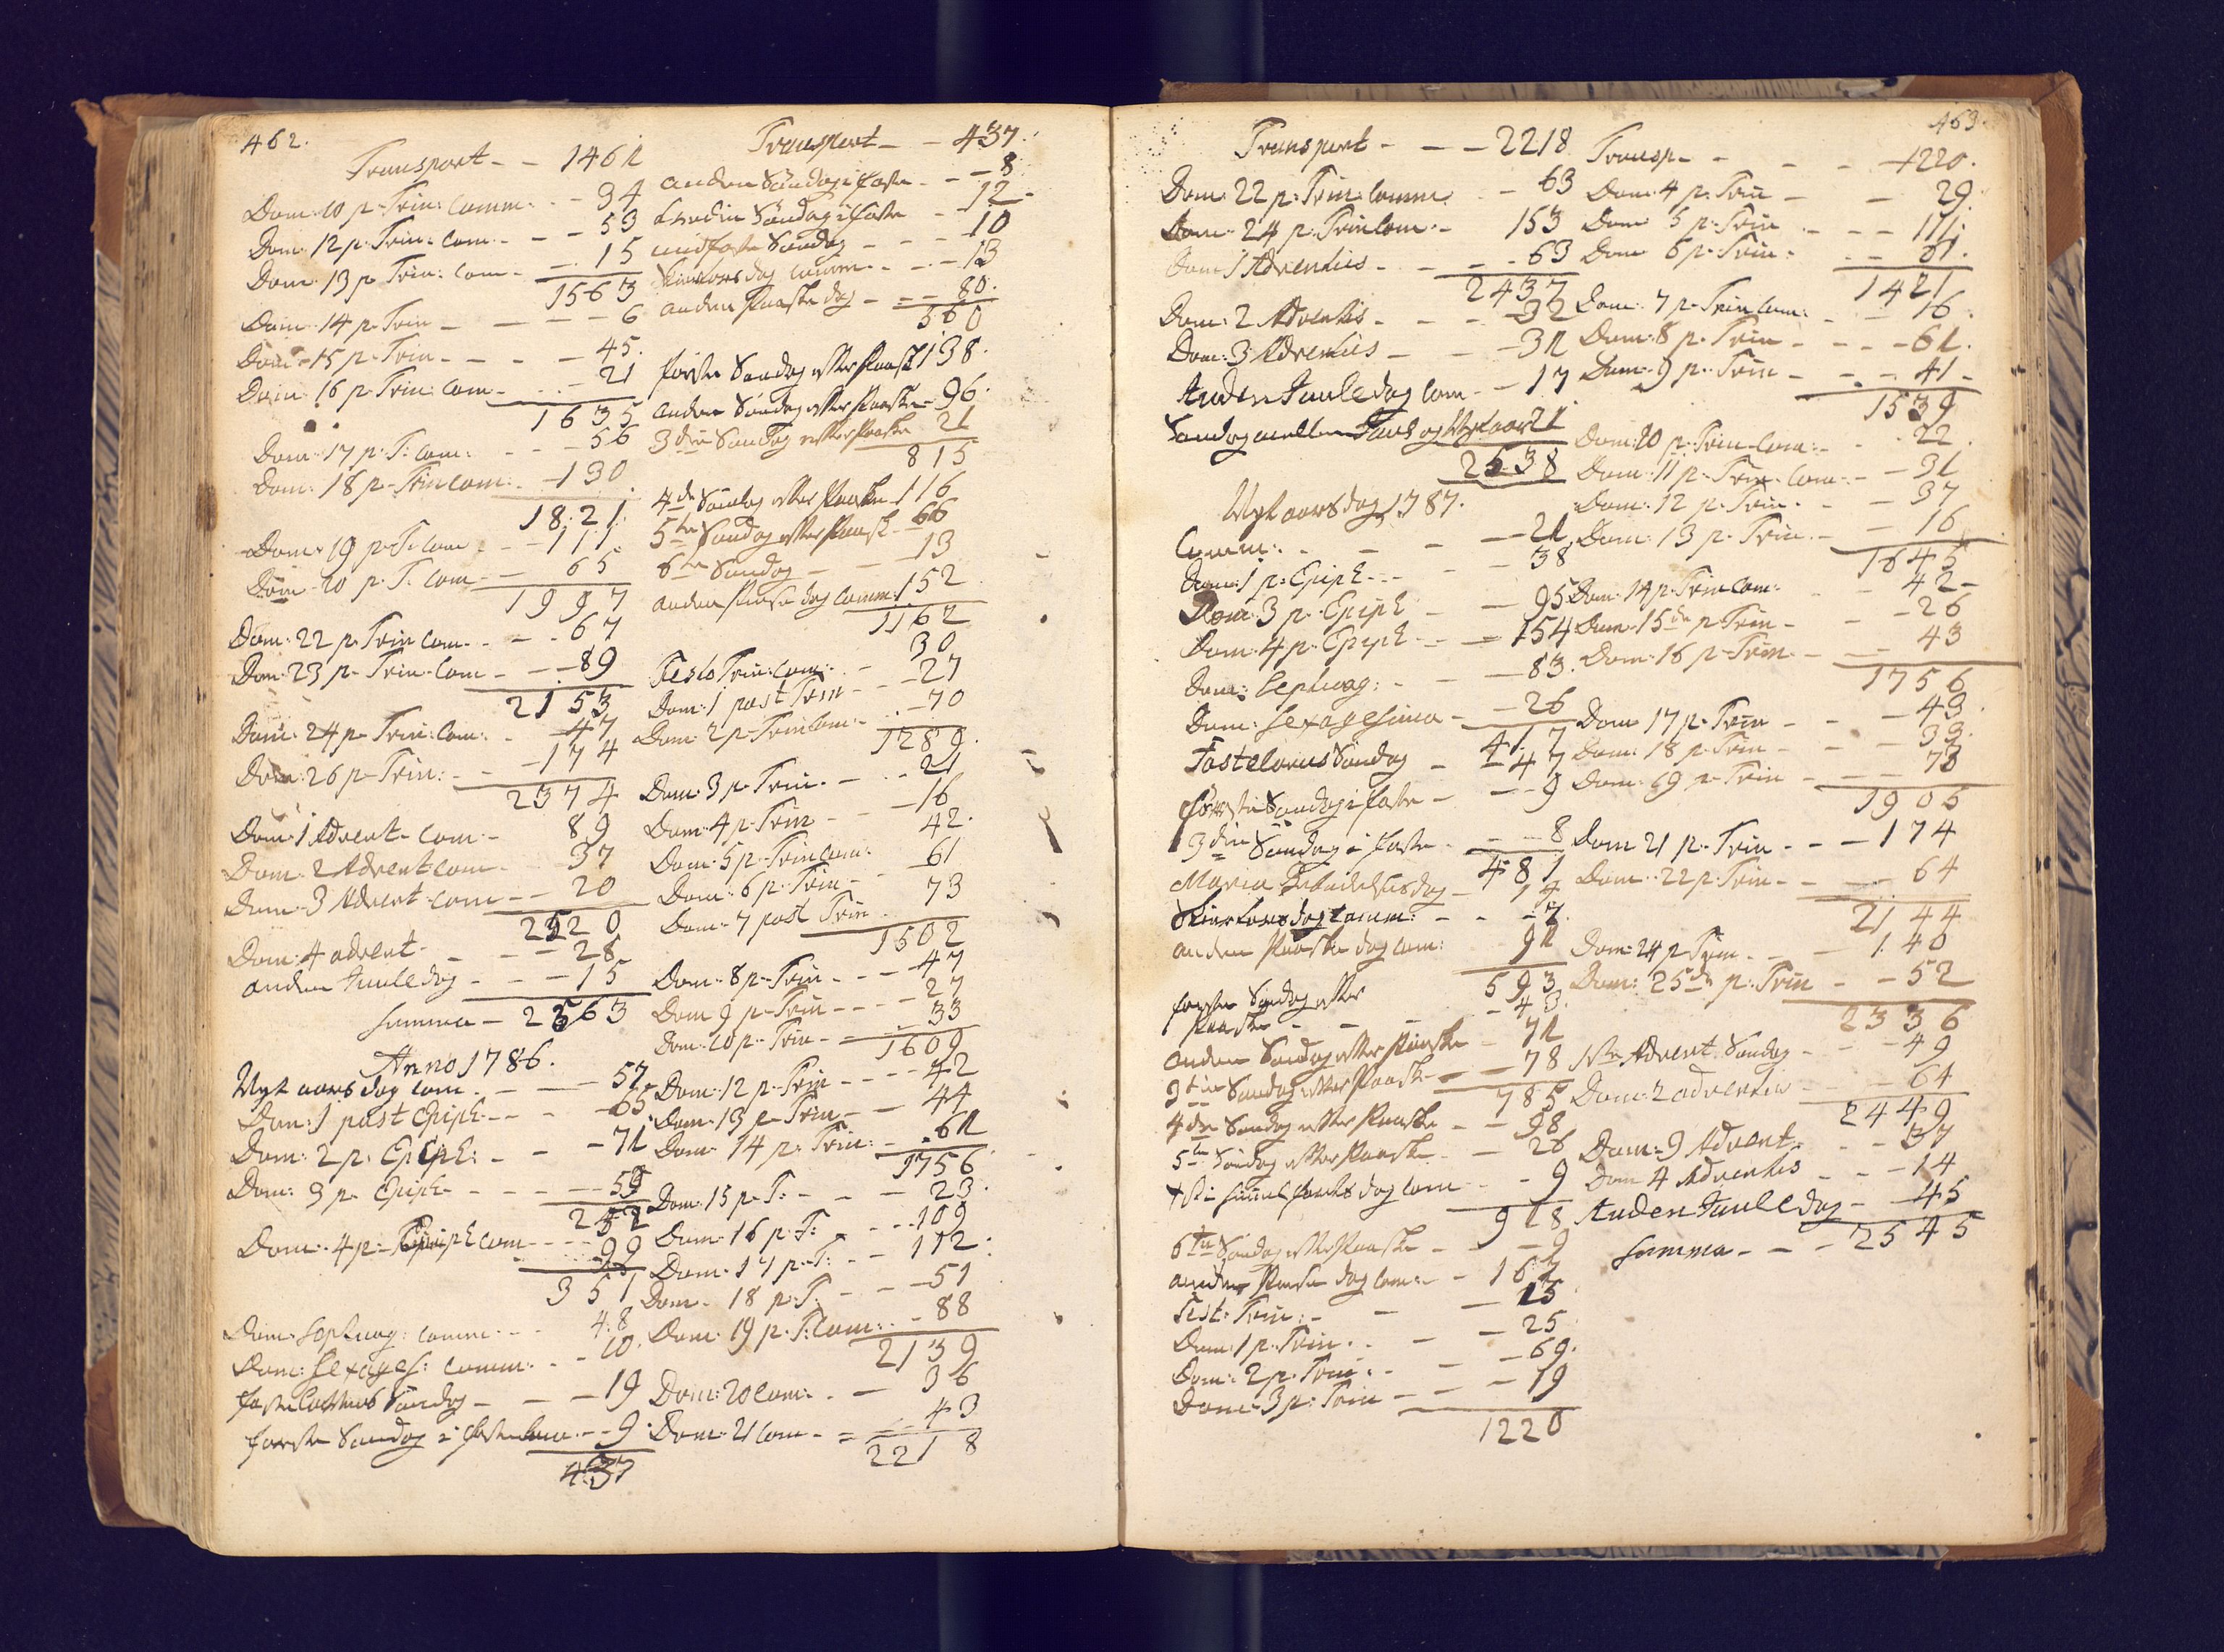 462.
Transport - - 1461
Dom: 10 p. Trin: Comm: - - 34
Dom: 12 p. Trin: Com - - - 53
Dom: 13 p. Trin: Com - - 15
1563
Dom: 14 p. Trin - - - - 6
Dom: 15 p. Trin - - - - 45.
Dom: 16 p. Trin: Com - - - 21
1635
Dom: 17 p. T: Com: - - 56
Dom: 18 p. Trin Com: - 130
1821
Dom: 19 p. T. Com - - 111
Dom: 20 p. T: Com - - 65
1997
Dom: 22 p. Trin Com - - - 67
Dom: 23 p. Trin: Com - - - 89
2153
Dom: 24 p. Trin: Com: - 47
Dom: 26 p. Trin: - - - 174
2374
Dom: 1 Advent. Com - 89
Dom. 2 Advent Com - 37
Dom. 3 Advent Com - - 20
2520
Dom: 4 advent - - - 28
anden Juuledag - - - 15
Summa - 2563
Anno 1786.
Nyt aars dag Com. - - - 57
Dom: 1 post Epiph - - - 65
Dom: 2 p. Epiph: - - - 71
Dom: 3 p. Epiph - - - - 59
252
Dom: 4 p. Epiph Com - - - 99
351
Dom. Septuag: Comm: - - 48
Dom: Sexages: Comm. - - 10.
Fastelavns Søndag - - - 19
første Søndag i Fasten - - 9.
437
Transport - - 437.
anden Søndag i faste - - - 8
tredie Søndag i faste - 12 -
midfaste Søndag - - - 10
Skiertorsdag Comm. - - - 13
anden Paaske dag - - - 80.
560
første Søndag efter Paask 138.
anden Søndag efter Paaske - 96.
3die Søndag efter Paaske 21
815
4de Søndag efter Paaske 116
5te Søndag efter Paask - 66
6te Søndag - - - 13
anden Pintse dag Comm: 152
1162
Festo Trin: Com: - 30
Dom: 1 post Trin - - - 27
Dom: 2 p. Trin Com: - - - 70
1289.
Dom: 3 p. Trin. - - - 21
Dom: 4 p. Trin - - - 16
Dom: 5 p. Trin Com: 42.
Dom: 6 p. Trin - - 61
Dom: 7 post Trin 73
1502
Dom: 8 p. Trin - - - 47
Dom 9 p. Trin - - - 27
Dom: 10 p. Trin - - 33
1609
Dom: 12 p. Trin - - - - 42
Dom: 13 p. Trin - - 44
Dom: 14 p. Trin: - - 61
1756
Dom: 15 p. T: - - - 23.
Dom: 16 p. T: - - - 109
Dom. 17 p. T: - - 112.
Dom. 18 p. T. - - - 51
Dom. 19 p. T: Com: - - 88
2139
Dom: 20 Com: - - 36
Dom: 21 Com. - - - 43
2218
463.
Transport - - - 2218
Dom: 22 p: Trin: Comm: - 63
Dom: 24 p. Trin Com - - 153
Dom 1 Adventus - - - - 63
2437
Dom: 2 Adventus - - - - 32
Dom: 3 Adventus - - - 31
Anden Juuledag Com - - 17
Søndag mellem Juul og Nyt aar 21.
2538
Nyt aars dag 1787.
Comm: - - - - - 21
Dom: 1 p: Epiph - - - - 38
Dom: 3 p. Epiph - - 95
Dom. 4 p. Epiph - - - 154
Dom: Septuag: - - - 83.
Dom: Sexagesima - - 26
417
Fastelavns Søndag - - 47
første Søndag i faste - - - 9
3die Søndag i faste - - - 8
481
Maria Bebudelses dag - 14
Skiertorsdag Comm: - - - 7.
anden Paaske dag Com: 91
593
første Søndag efter
Paaske - - - - 43.
anden Søndag efter Paaske - 71
3die Søndag efter Paaske - - 78
785
4de Søndag efter Paaske - - 98
5te Søndag efter Paaske - - 26
Christi himmelfarts dag Com - - 9
918
6te Søndag efter Paaske - - - 9
anden Pintse dag Com: - - 165
Fest. Trin: - - - 15
Dom: 1 p. Trin. - - - 25
Dom: 2 p. Trin: - - - 69.
Dom: 3 p: Trin - - - 19
1220
Transp - - - - 1220.
Dom: 4 p: Trin - - 29.
Dom 5 p: Trin - - - 111.
Dom 6 p. Trin: - - 61.
1421
Dom: 7 p. Trin Com: - - 16.
Dom: 8 p. Trin - - - - 61.
Dom: 9 p. Trin - - - - 41 -
1539
Dom: 10 p. Trin Com: - - 22.
Dom: 11 p. Trin. Com: - - 31
Dom: 12 p. Trin. - - 37
Dom: 13 p. Trin. - - 16
1645
Dom: 14 p. Trin Com: - - 42 -
Dom: 15de p. Trin - - - 26
Dom: 16 p. Trin - - - 43
1756
Dom 17 p. Trin - - - 43.
Dom: 18 p. Trin - - - 33.
Dom: 19 p. Trin - - - 73
1905
Dom 21 p. Trin - - - 174
Dom: 22 p. Trin - - - 64
2144
Dom: 24 p Trin - - - 140
Dom: 25de p. Trin - - - 52
2336
1ste Advent Søndag - - - 49
Dom: 2 adventus - - - 64
2449
Dom: 3 Advent. - - - 37
Dom 4 Adventus - - - 14
Anden Juuledag - - 45
Summa - - - 2545